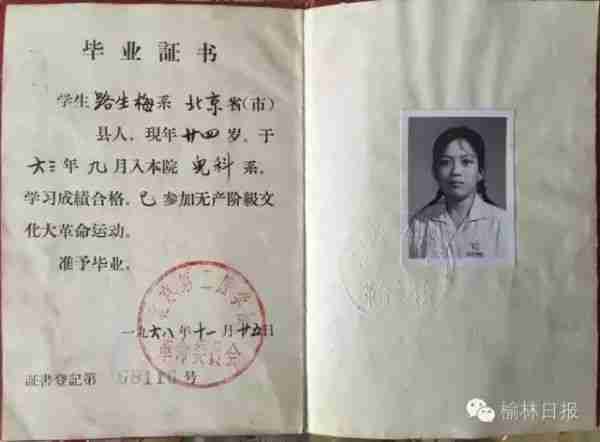 毕业証书
学生 路生梅 系 北京 省(市)
县人，现年 廿四 岁，于
六三年九月入本院 儿科 系，
学习成績合格，已参加无产阶級文
化大革命运动。
准予毕业。
北京第二医学院
革命委员会
一九六八年十一月廿五日
証書登記第 68116 号
榆林日报